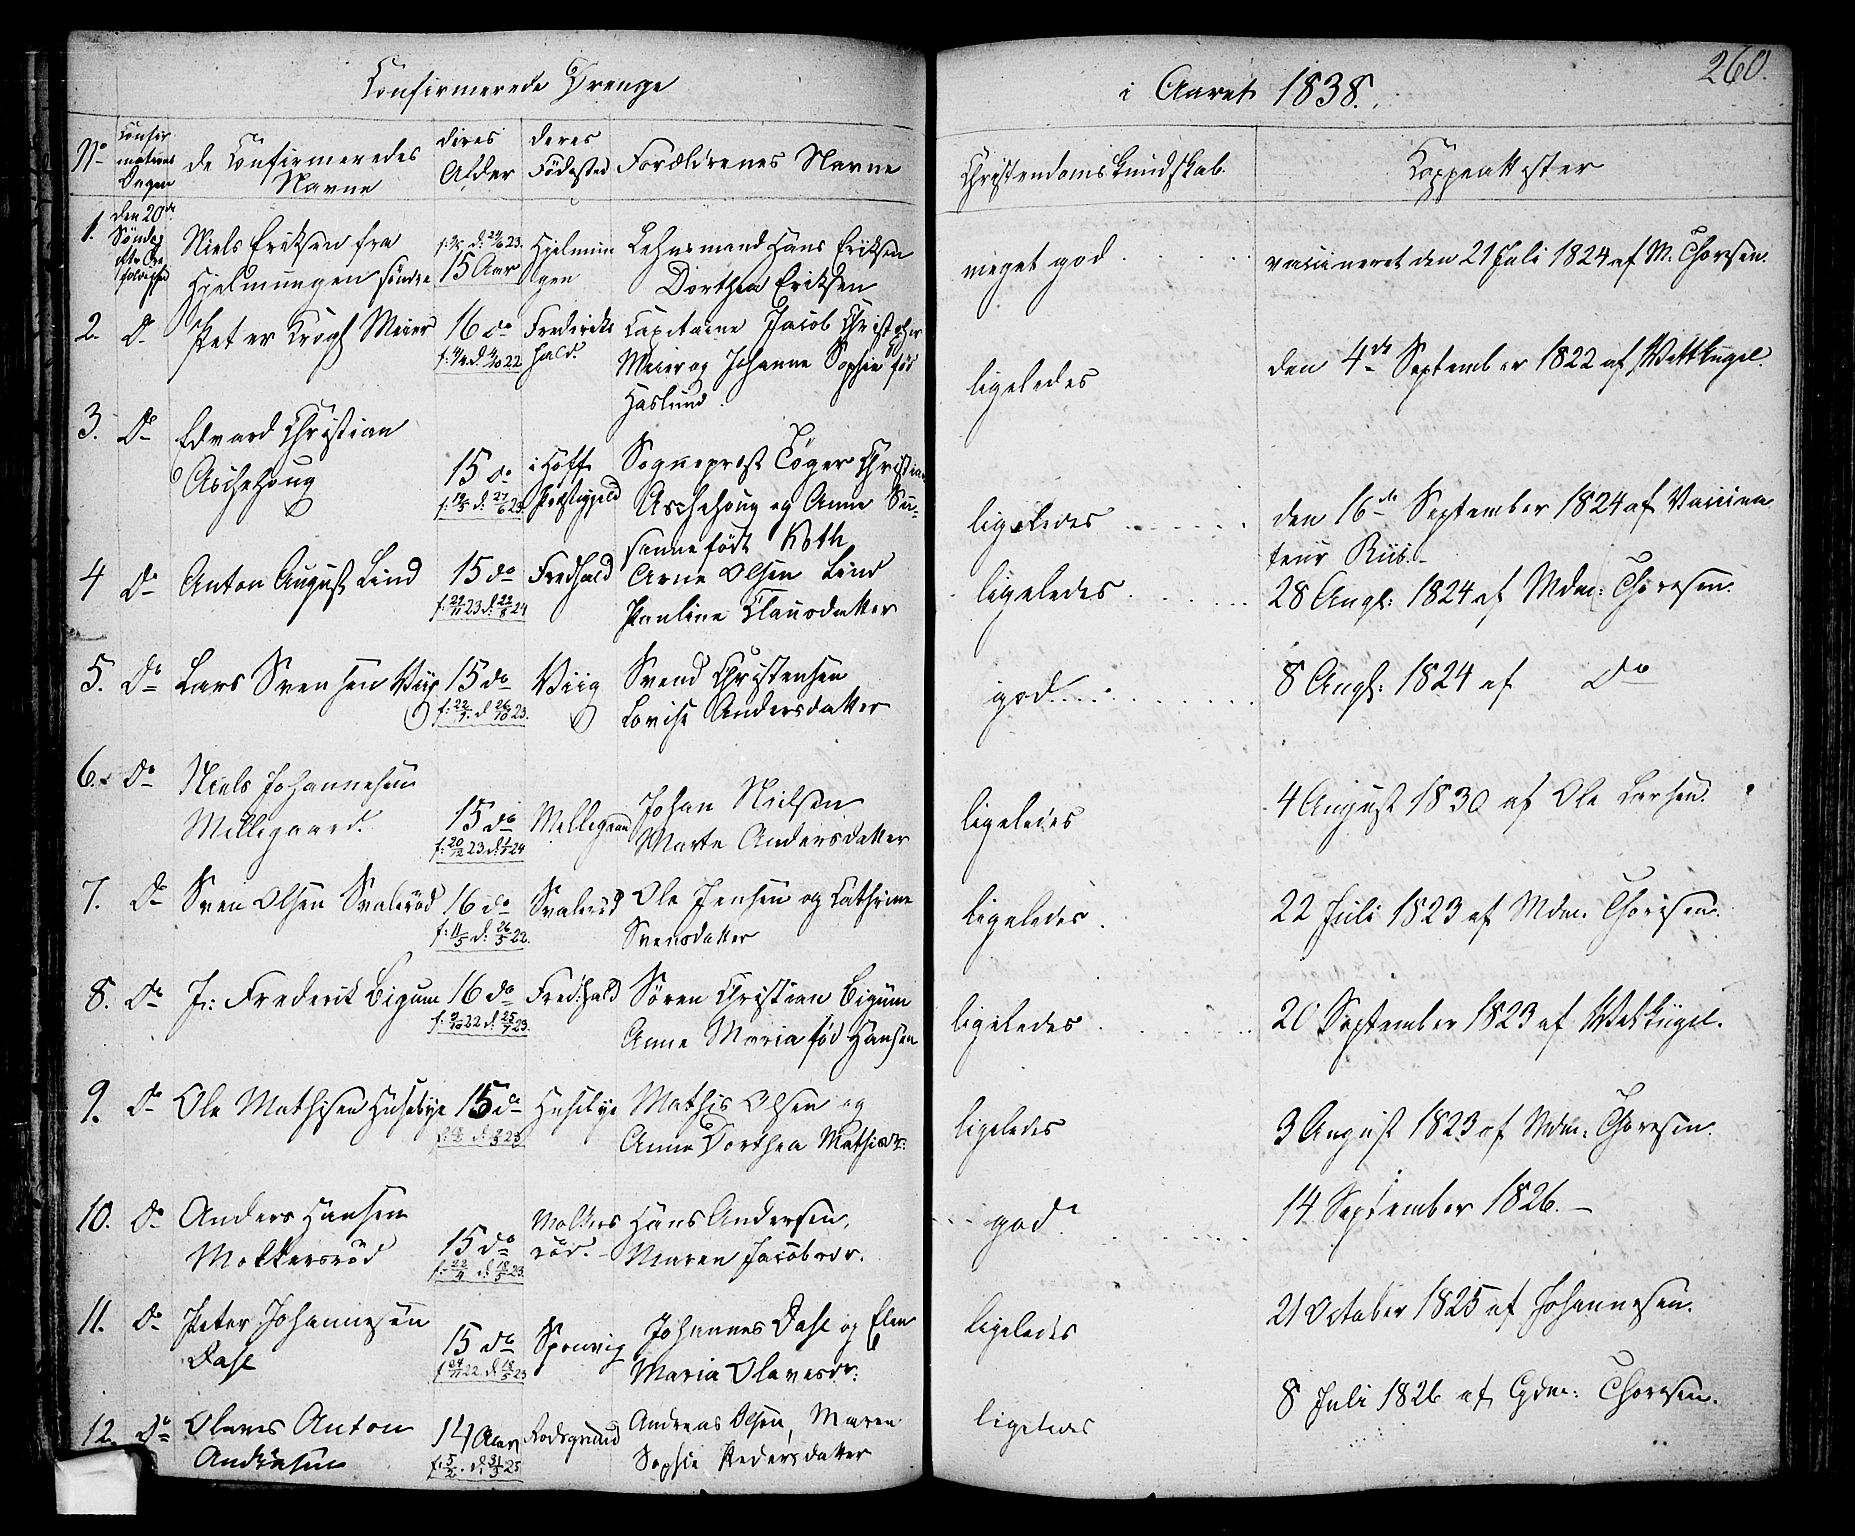 Confirmerede Drenge
i Aaret 1838.
260.
No
Confir
mations
Dagen
de Confirmeredes
Navne
deres
Alder
deres
Fødested
Forældrenes Navne
Christendoms Kundskab.
Koppeattester
1.
den 20de
Søndag
efter Tre
foldighed
Niels Eriksen fra
Hjelmungen søndre
15 Aar
Hjelmun
gen
Lehnsmand Hans Eriksen
Dorthea Eriksen
meget god
vaccineret den 21 Juli 1824 af M. Thoresen.
2. Do
Peter Krogh Meier
16 do
Frederiks
hald.
Capitaine Jacob Christopher
Meier og Johanne Sophie fød
Haslund.
ligeledes
den 4de September 1822 af Wettkugel.
3. Do
Edvard Christian
Aschehoug
15 do
i Hoff
Præstegjeld
Sognepræst Tøger Christian
Aschehoug og Anne Su-
sanne født Koth
ligeledes
den 16de September 1824 af Vaccina
teur Riis.
4 Do
Anton August Lind
15 do
f: 29/11 23 d: 22/2 24
Fredhald
Arne Olsen Lind
Pauline Clausdatter
ligeledes
28 Augs: 1824 af Mdm: Thoresen.
5. Do
Lars Svensen Viig
15 do
f: 22/9. d 26/10 23.
Viig
Svend Christensen
Lovise Andersdatter
god
8 Augs: 1824 af Do
6. Do
Niels Johannesen
Millegaard.
15 do
Millegaard
Johan Nielsen
Marte Andersdatter
ligeledes
4 August 1830 af Ole Larsen.
7. Do
Sven Olsen Svalerød
16 do
f: 11/5 d: 26/5 22.
Svalerød
Ole Jensen og Cathrine
Svensdatter
ligeledes.
22 Juli 1823 af Mdm. Thoresen.
8. Do
Fr: Frederik Bigum
16 do
f: 9/10 22 d: 25/7 23.
Fred:hald
Sören Christian Bigum
Anne Maria fød Hansen
ligeledes
20 September 1823 af Wetkugel.
9. Do
Ole Mathisen Husebye
15 do
Husebye
Mathis Olsen og
Anne Dorthea Mathisdr:
ligeledes
3 August 1823 af Mdm. Thoresen.
10. Do
Anders Hansen
Molkersrød
15 do
Molkers
rød.
Hans Andersen,
Maren Jacobsdr.
god
14 September 1826.
11. Do
Peter Johannesen
Dahl
15 do
Sponvig
Johannes Dahl og Elen
Maria Olavesdr:
ligeledes
21 October 1825 af Johannesen.
12. Do
Olaves Anton
Andresen
14 Aar
Rødsgrund
Andreas Olsen, Maren
Sophie Pedersdatter
ligeledes
8 Juli 1826 af Thoresen.